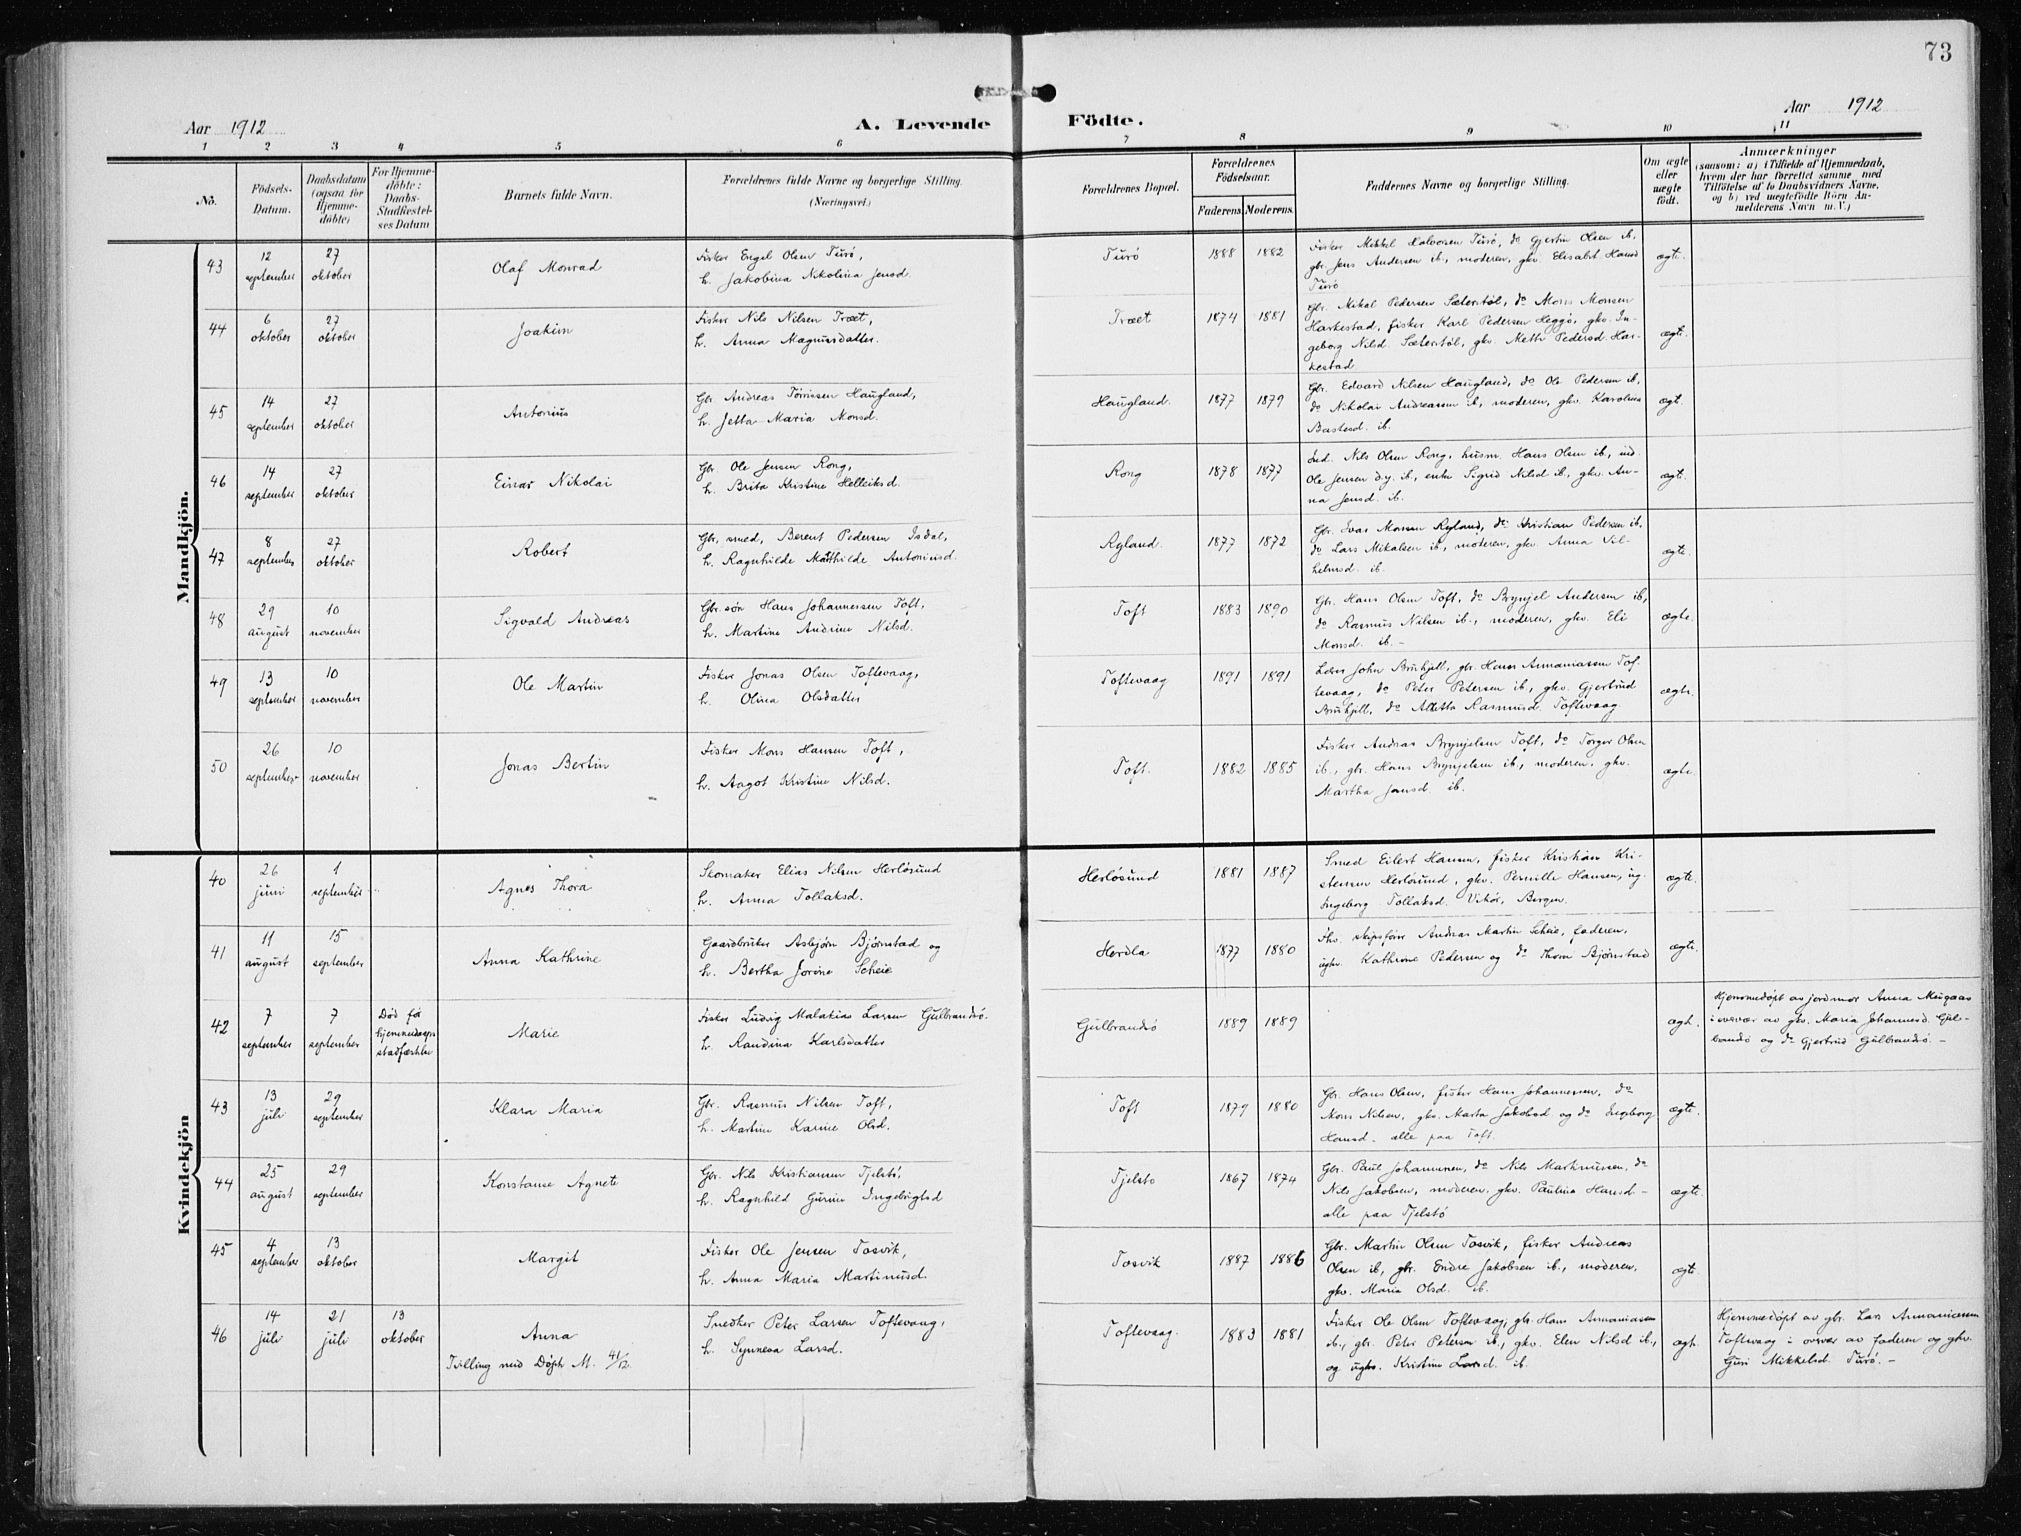 73
Aar 1912
A. Levende Födte.
Aar 1912
1 2 3 4 5 6 7 8 9 10 11
No.
Födsels-Datum.
Daabsdatum (ogsaa for Hjemme-döbte)
For Hjemme-döbte: Daabs-Stadfæstel-ses Datum
Barnets fulde Navn.
Forældrenes fulde Navne og borgerlige Stilling. (Næringsvei.)
Forældrenes Bopæl.
Forældrenes Födselsaar.
Faderens Moderens.
Faddernes Navne og borgerlige Stilling.
Om ægte eller uægte födt.
Anmærkninger
(saasom: a) i Tilfælde af Hjemmedaab,
hvem der har forrettet samme med
Tilföielse af to Daabsvidners Navne,
og b) ved uægtefödte Börn An-
melderens Navn m. V.)
Mandkjön.
43
12 september
27 oktober
Olaf Monrad
Fisker Engel Olsen Turö,
h. Jakobina Nikolina Jensd.
Turö
1888 1882
Fisker Mikkel Halvorsen Turö, do Gjertin Olsen ib,
gbr. Jens Andersen ib, moderen, gkv. Elisabt Hansd
Turö
ægte.
44
6 oktober
27 oktober
Joakim
Fisker Nils Nilsen Træet,
h. Anna Magnusdatter.
Træet
1874 1881
Gbr. Mikal Pedersen Sæterstöl, do Mons Monsen
Harkestad, fisker Karl Pedersen Heggö, gkv. In-
geborg Nilsd. Sæterstöl, gkv. Mette Pedersd. Har-
kestad
ægte.
45
14 september
27 oktober
Antonius
Gbr. Andreas Törrissen Haugland,
h. Jetta Maria Monsd.
Haugland.
1877 1879
Gbr. Edvard Nilsen Haugland, do Ole Pedersen ib,
do Nikolai Andreassen ib, moderen, gkv. Karolina
Bastesd. ib.
ægt.
46
14 september
27 oktober
Einar Nikolai
Gbr. Ole Jensen Rong,
h. Brita Kristine Helleiksd.
Rong
1878 1877
Ind. Nils Olsen Rong, husm. Hans Olsen ib, ind.
Ole Jensen d.y. ib, enke Sigrid Nilsd ib, gkv. An-
na Jensd. ib.
ægte.
47
8 september
27 oktober
Robert
Gbr, smed, Berent Pedersen Isdal,
h. Ragnhilde Mathilde Antoniusd
Ryland.
1877 1872
Gbr. Ivar Monsen Ryland, do Kristian Pedersen ib,
do Lars Mikalsen ib, moderen, gkv. Anna Vil-
helmsd. ib.
ægte.
48
29 august
10 november
Sigvald Andreas
Gbr. sön Hans Johannessen Toft,
h. Martine Andrine Nilsd.
Toft
1883 1890
Gbr. Hans Olsen Toft, do Brynjel Andersen ib,
do Rasmus Nilsen ib., moderen, gkv. Eli
Monsd. ib. -
ægte.
49
13 september
10 november
Ole Martin
Fisker Jonas Olsen Toftevaag,
h. Olina Olsdatter
Toftevaag
1891 1891
Lærer John Bruhjell, gbr. Hans Annaniassen Tof-
tevaag, do Peter Petersen ib., gkv. Gjertrud
Bruhjell, do Aletta Rasmusd. Toftevaag
ægte.
50
26 september
10 november
Jonas Bertin
Fisker Mons Hansen Toft,
h. Aagot Kristine Nilsd.
Toft.
1882 1885
Fisker Andreas Brynjelsen Toft, do Torger Olsen
ib., gbr. Hans Brynjelsen ib., moderen, gkv.
Martha Jensd. ib.
ægte.
Kvindekjön
40
26 juni
1 september
Agnes Thora
Skomaker Elias Nilsen Herlösund
h. Anna Tollaksd.
Herlösund
1881 1887
Smed Eilert Hansen, fisker Kristian Kri-
stensen Herlösund, gkv. Pernille Hansen, ug.
Ingeborg Tollaksd. Vikör, Bergen.
ægte.
41
11 august
15 september
Anna Kathrine
Gaardbruker Asbjörn Bjørnstad og
h. Bertha Jorine Scheie
Herdla
1877 1880
Fhv. skipsförer Andreas Martin Scheie, faderen,
ugkv. Kathrine Pedersen og do Thora Bjørnstad
ægte.
42
7 september
7 september
Död før hjemmedaaps stadfæstelse
Marie
Fisker Ludvig Malakias Larsen Gulbrandsö.
h. Randina Karlsdatter
Gulbrandsö
1889 1889
ægt.
Hjemmedøpt av jordmor Anna Mugaas
i overvær av gkv. Maria Johannesd. Gul-
brandsö og do Gjertrud Gulbrandsö. -
43
13 juli
29 september
Klara Maria
Gbr. Rasmus Nilsen Toft,
h. Martine Karine Olsd.
Toft
1879 1880
Gbr. Hans Olsen, fisker Hans Johannessen, do
Mons Nilsen, gkv. Marta Jakobsd og do Ingeborg
Hansd. alle paa Toft.
ægte.
44
25 august
29 september
Konstanse Agnete
Gbr. Nils Kristiansen Tjelstö,
h. Ragnhild Gurine Ingebrigtsd
Tjelstö
1867 1874
Gbr. Paul Johannesen, do Nils Markussen, do
Nils Jakobsen, moderen, gkv. Paulina Hansd -
alle paa Tjelstö
ægte.
45
4 september
13 oktober
Margit
Fisker Ole Jensen Tosvik,
h. Anna Maria Martinusd.
Tosvik
1887 1886
Gbr. Martin Olsen Tosvik, fisker Andreas
Olsen ib, gbr. Endre Jakobsen ib., moderen,
gkv. Maria Olsd. ib.
ægte.
46
14 juli
21 juli
13 oktober
Anna
Tvilling med Döpte M. 41/12.
Snedker Peter Larsen Toftevaag,
h. Synneva Larsd.
Toftevaag.
1883 1881
Fisker Ole Olsen Toftevaag, gbr. Hans Annaniassen
ib., gbr. Peter Petersen ib., gkv. Elen Nilsd ib.,
og ugkv. Kristine Larsd. ib.
ægte.
Hjemmedøpt av gbr. Lars Annaniassen
Toftevaag i overvær av faderen og gkv.
Guri Mikkelsd. Turö. -